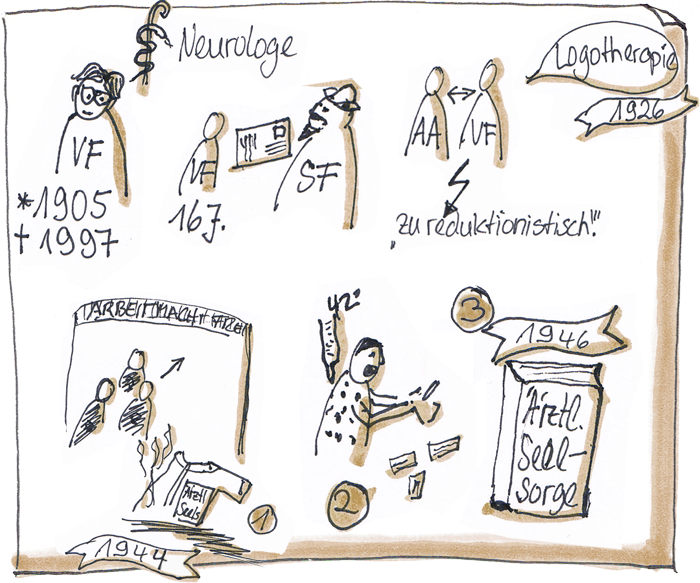 Neurologe
VF
*1905
† 1997
VF
16J.
SF
AA
VF
"zu reduktionistisch!"
Logotherapie
1926
ARBEIT MACHT
Ärztl.
Seels
1
1944
42°
2
3
1946
Ärztl.
Seel-
sorge